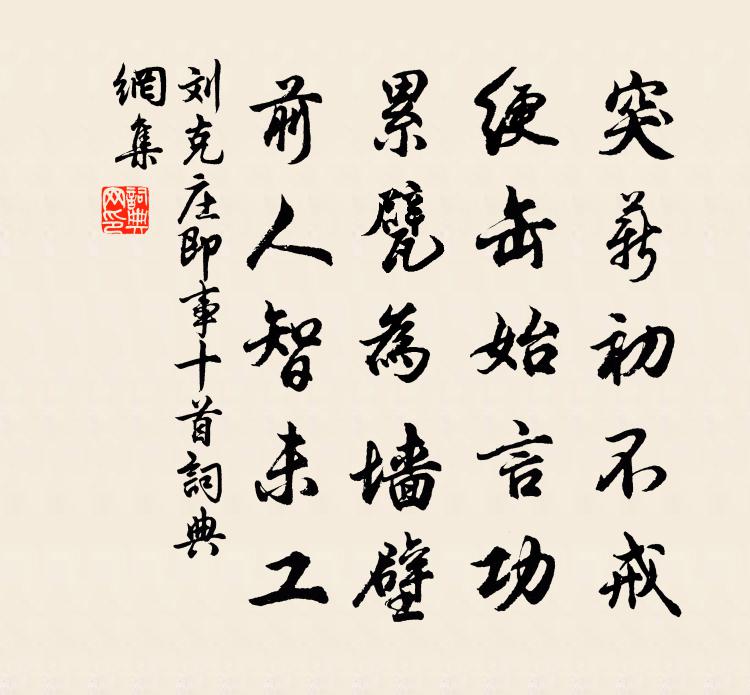 突薪初不戒
绠缶始言功
累甓為墙壁
前人智未工
刘克庄即事十首詞典
網集
詞典网印